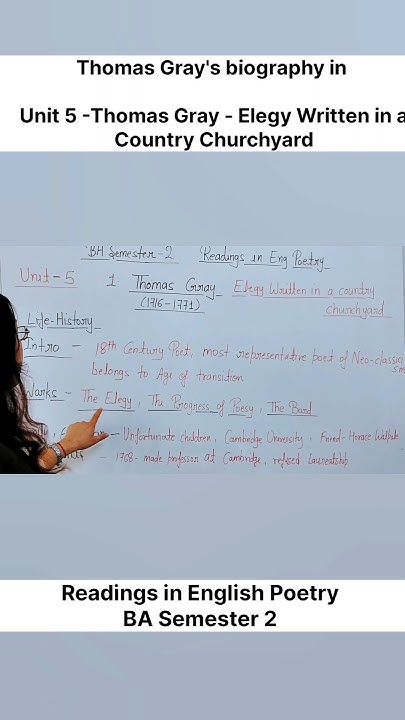 Thomas Gray's biography in
Unit 5 -Thomas Gray - Elegy Written in a
Country Churchyard
BA Semester-2 Readings in Eng Poetry
Unit-5 1 Thomas Gray Elegy Written in a country
(1716-1771) churchyard
Life-History
Intro - 18th Century Poet, most representative poet of Neo-classi
belongs to Age of transition
Works - The Elegy, The Progress of Poesy, The Bard
- Unfortunate children, Cambridge University, Friend-Horace Walpole
- 1768-made professor at Cambridge, refused Laureatship
Readings in English Poetry
BA Semester 2